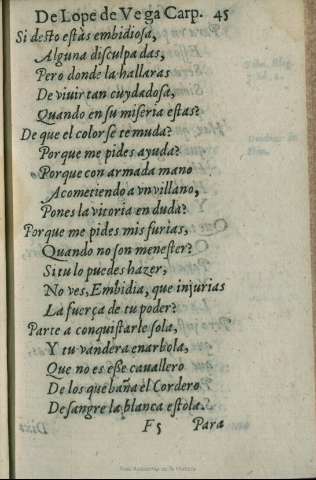 De Lope de Vega Carp. 45
Si desto estàs embidiosa,
Alguna disculpa das,
Pero donde la hallaras
De viuir tan cuydadosa,
Quando en su miseria estas?
De que el color se te muda?
Porque me pides ayuda?
Porque con armada mano
Acometiendo a vn villano,
Pones la vitoria en duda?
Porque me pides mis furias,
Quando no son menester?
Si tu lo puedes hazer,
No ves, Embidia, que injurias
La fuerça de tu poder?
Parte a conquistarle sola,
Y tu vandera enarbola,
Que no es esse cauallero
De los que baña el Cordero
De sangre la blanca estola.
F5 Para